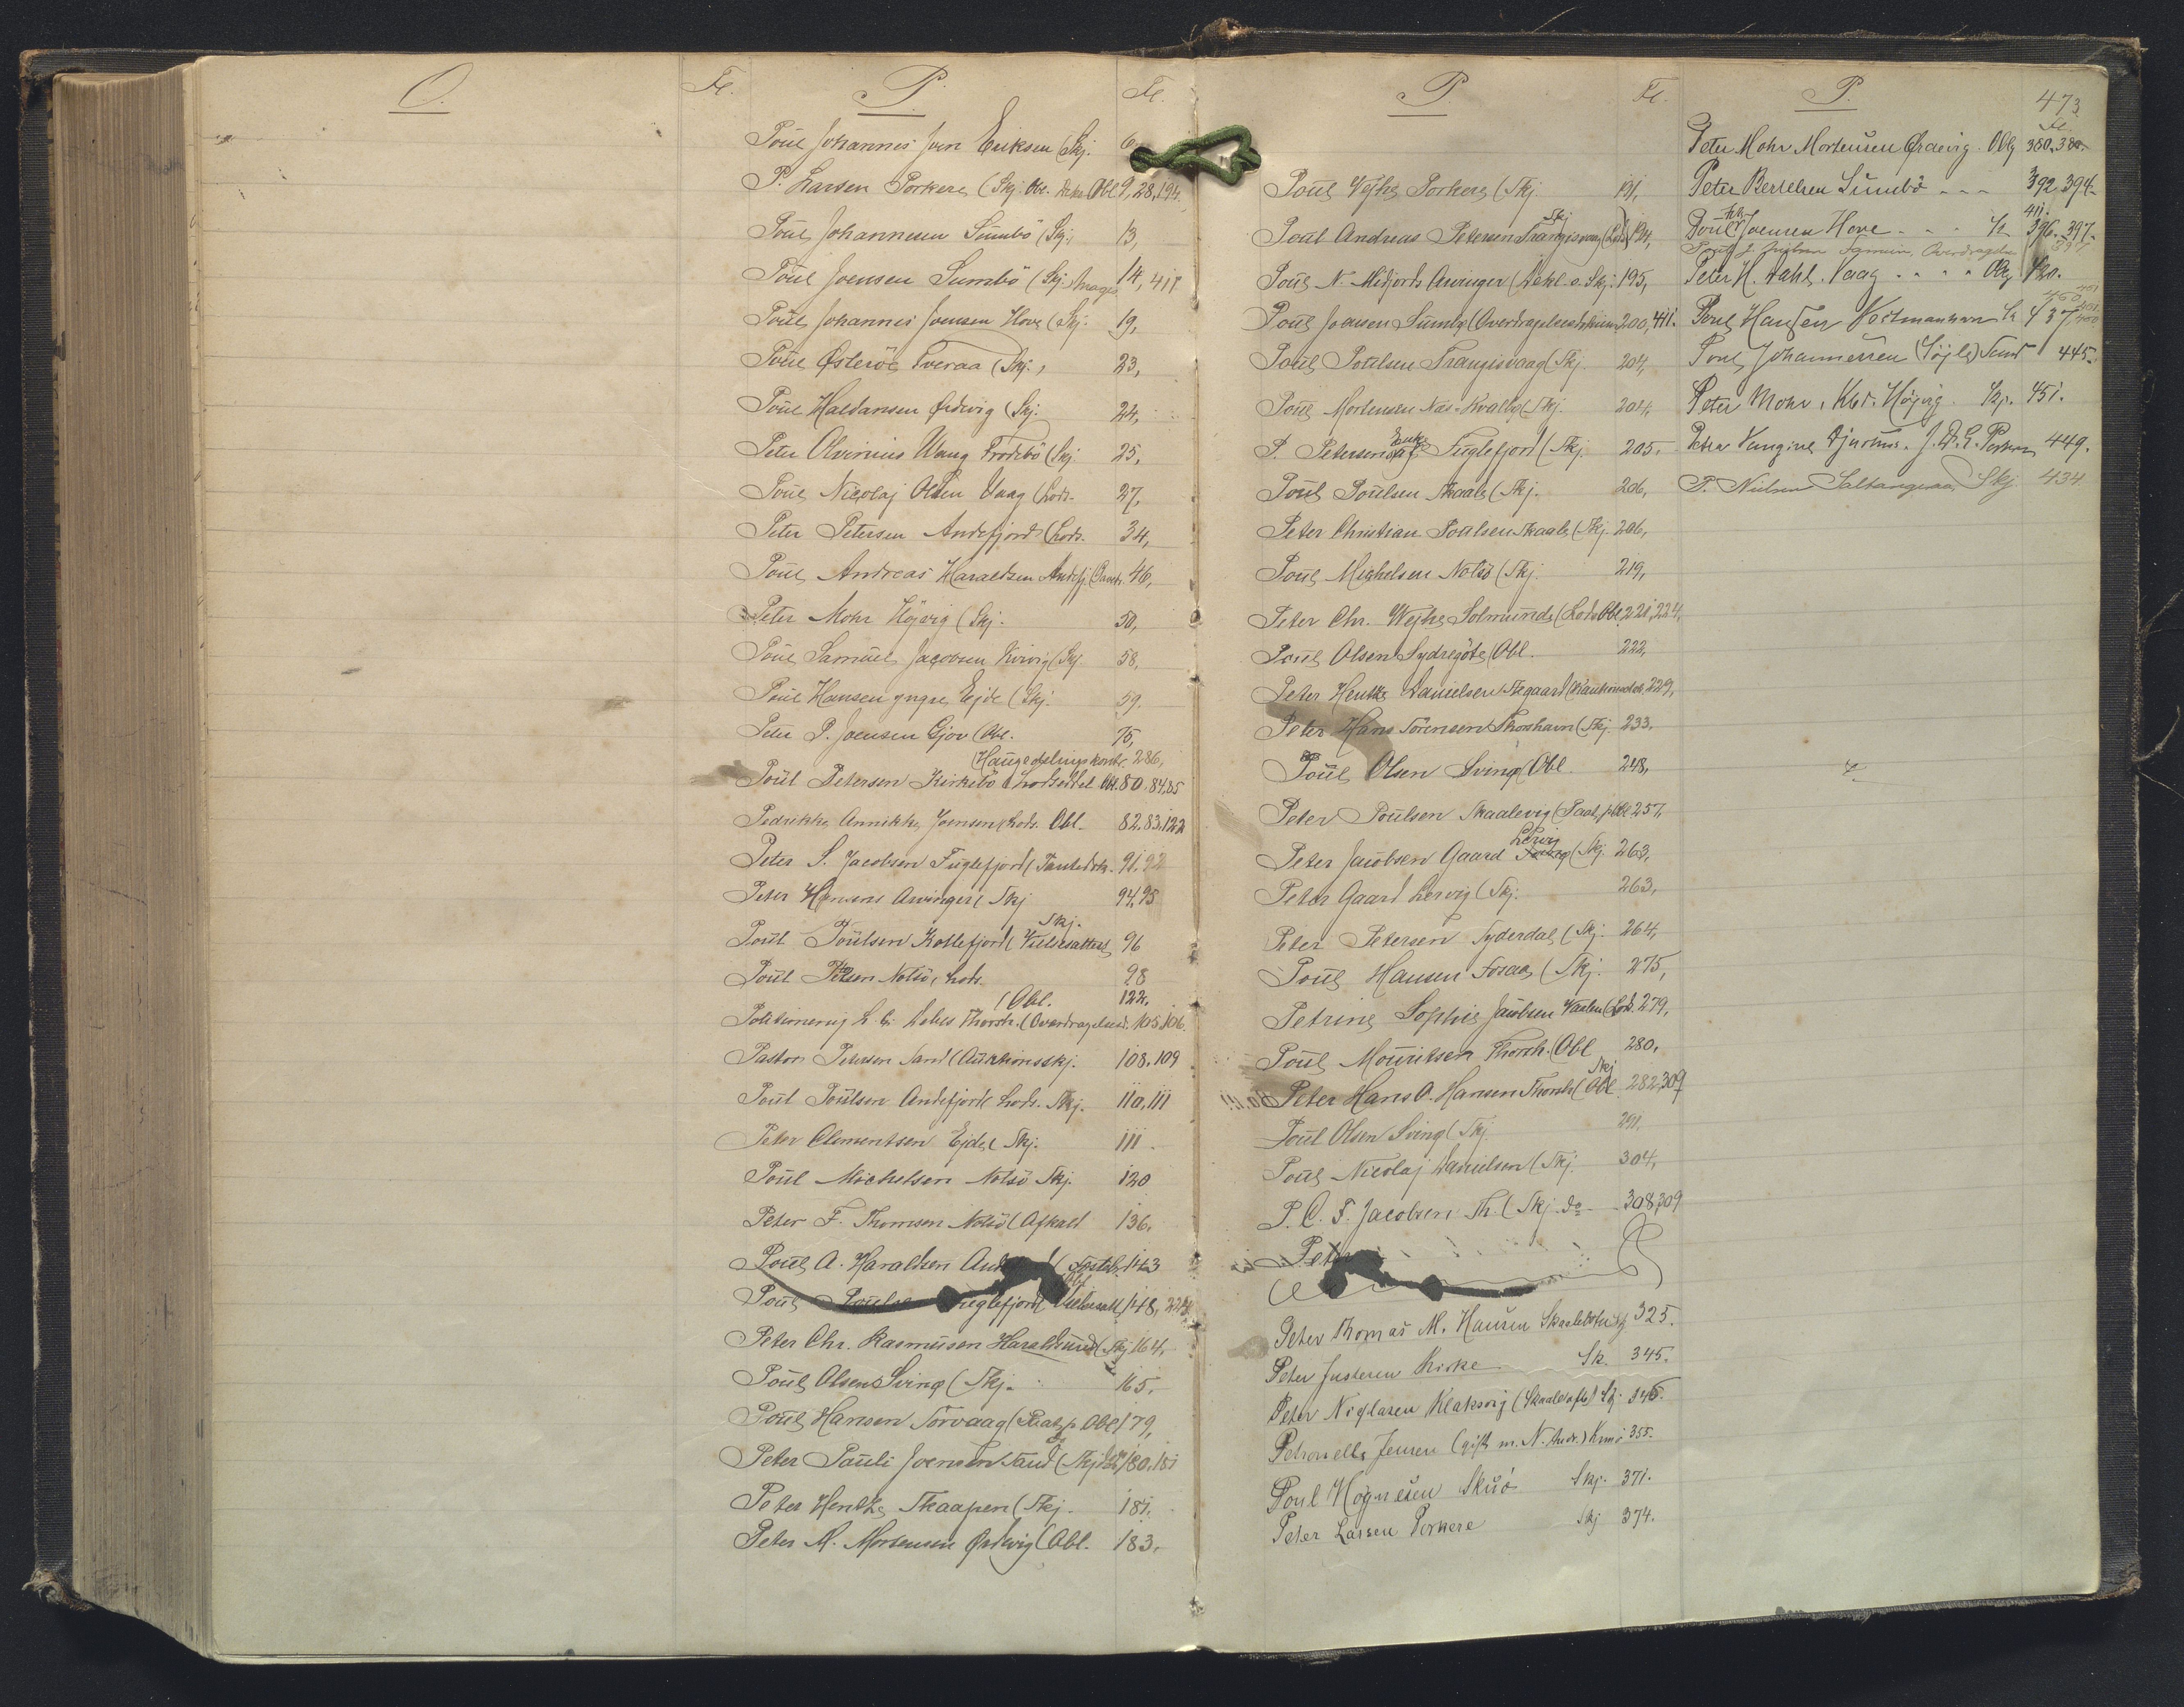 O.
Fl.
P.
Fl.
Poul Johannes Joen Eriksen (Skj. 6,
P. Larsen Porkere (Skj. Obl. Obl. 9, 28, 194.
Poul Johannesen Sumbö (Skj. 13,
Poul Joensen Sumbö (Skj. 14, 411
Poul Johannes Joensen Hove (Skj. 19,
Poul Østerøe Tveraa (Skj., 23,
Poul Haldansen Ørdevig (Skj. 24,
Peter Olvinius Wang Frodebö (Skj. 25,
Poul Nicolaj Olsen Vaag (Lods. 27,
Peter Petersen Andefjord (Lods. 34,
Poul Andreas Haraldsen Andefj. 46,
Peter Mohr Höjvig (Skj. 50,
Poul Samuel Jacobsen Kvivig (Skj 58,
Poul Hansen yngre Ejde (Skj. 59.
Peter P. Joensen Gjov (Obl. 75,
(Haugedelingskontr. 286,
Poul Petersen Kirkebö Lodseddel Obl. 80. 84, 85
Pedrikke Annikke Joensen Lods. Obl. 82. 83. 122
Peter S. Jacobsen Fuglefjord (Pantedok. 91, 92
Peter Hansens Arvinger (Skj 94, 95
Skj.
Poul Poulsen Kollefjord (Vielsesattest, 96
Poul Petersen Nolsö, Lods. 98
(Obl. 122.
Politibetjent Thorsh. (Overdragelsesd. 105, 106.
Pastor Petersen Sand (Auktionsskj. 108. 109
Poul Poulsen Andefjord Lods. Skj. 110, 111
Peter Clementsen Ejde (Skj. 111.
Poul Michelsen Nolsö Skj. 120
Peter F. Thomsen Nolsö (Afkald 136.
Poul A. Haraldsen (Fasteb. 143
Obl
Poul Fuglefjord Vielsesatt. 148, 224
Peter Chr. Rasmusen Haraldsund (Skj 164,
Poul Olsen Sving (Skj. 165.
Poul Hansen Sörvaag (Obl 179,
Peter Pauli Joensen Sand (Skj 180, 181
Peter Hentke Skaapen (Skj. 181.
Peter M. Mortensen Ørdevig (Obl. 183.
P.
Fl.
Poul Vejhe Porkere (Skj. 191,
Skj
Poul Andreas Petersen Trangisvaag (Lods 194,
Poul N. Midjords Arvinger (Dekl. o. Skj. 195,
Poul Joensen Sumbö (Overdragelsesdokum 200, 411.
Poul Poulsen Trangisvaag (Skj. 204,
Poul Mortensen Næs-Kvalbö (Skj. 204,
P. Petersens Enke af Fuglefjord (Skj 205.
Poul Poulsen Skaale (Skj. 206,
Peter Christian Poulsen Skaale (Skj. 206,
Poul Michelsen Nolsö (Skj. 219,
Peter Chr. Wejhe Solmunde (Lods Obl 221, 224,
Poul Olsen Sydregöte (Obl. 222,
Peter Hentke Danielsen Tegaard (Kautionsdok. 229,
Peter Hans Sörensen Thorshavn (Skj. 233.
Poul Olsen Sving (Obl. 248,
Peter Poulsen Skaalevig (Obl 257,
Lervig
Peter Jacobsen Gaard (Skj. 263,
Peter Gaard Lervig (Skj. 263,
Peter Petersen Syderdal (Skj. 264,
Poul Hansen Fossaa (Skj. 275,
Petrine Sophie Jacobsen (Lods. 279,
Poul Mouritsen Thorsh. (Obl 280,
Skj
Peter Hans O. Hansen Thorsh (Obl 282, 309
Poul Olsen Sving (Skj. 291,
Poul Nicolaj Danielsen (Skj. 304,
P. C. F. Jacobsen Th. (Skj. do 308, 309
Peter
Peter Thomas M. Hansen Skaalebotn Skj 325.
Peter Justesen Kirke Sk. 345.
Peter Niclasen Klaksvig (Skaaldafte) Skj. 346.
Petronella Jensen (gift m. N. Andr.) 355.
Poul Høgnesen Skuö Skj. 371.
Peter Larsen Porkere Skj 374.
P.
473
Fl.
Peter Mohr Mortensen Ørdevig. Obl 380. 380.
Peter Bertelsen Sumbö - - - 392 394.
411.
Poul Joensen Hove - - - Sk 396. 397.
Peter H. Dahl, Vaag. . . . Obl 420.
Poul Hansen Vestmanhavn Sk 437
Poul Johannessen (Söjle) Sund 445.
Peter Mohr, Kbr. Höjvig. Skj. 451.
449.
P. Nielsen Saltangeraa Skj 434